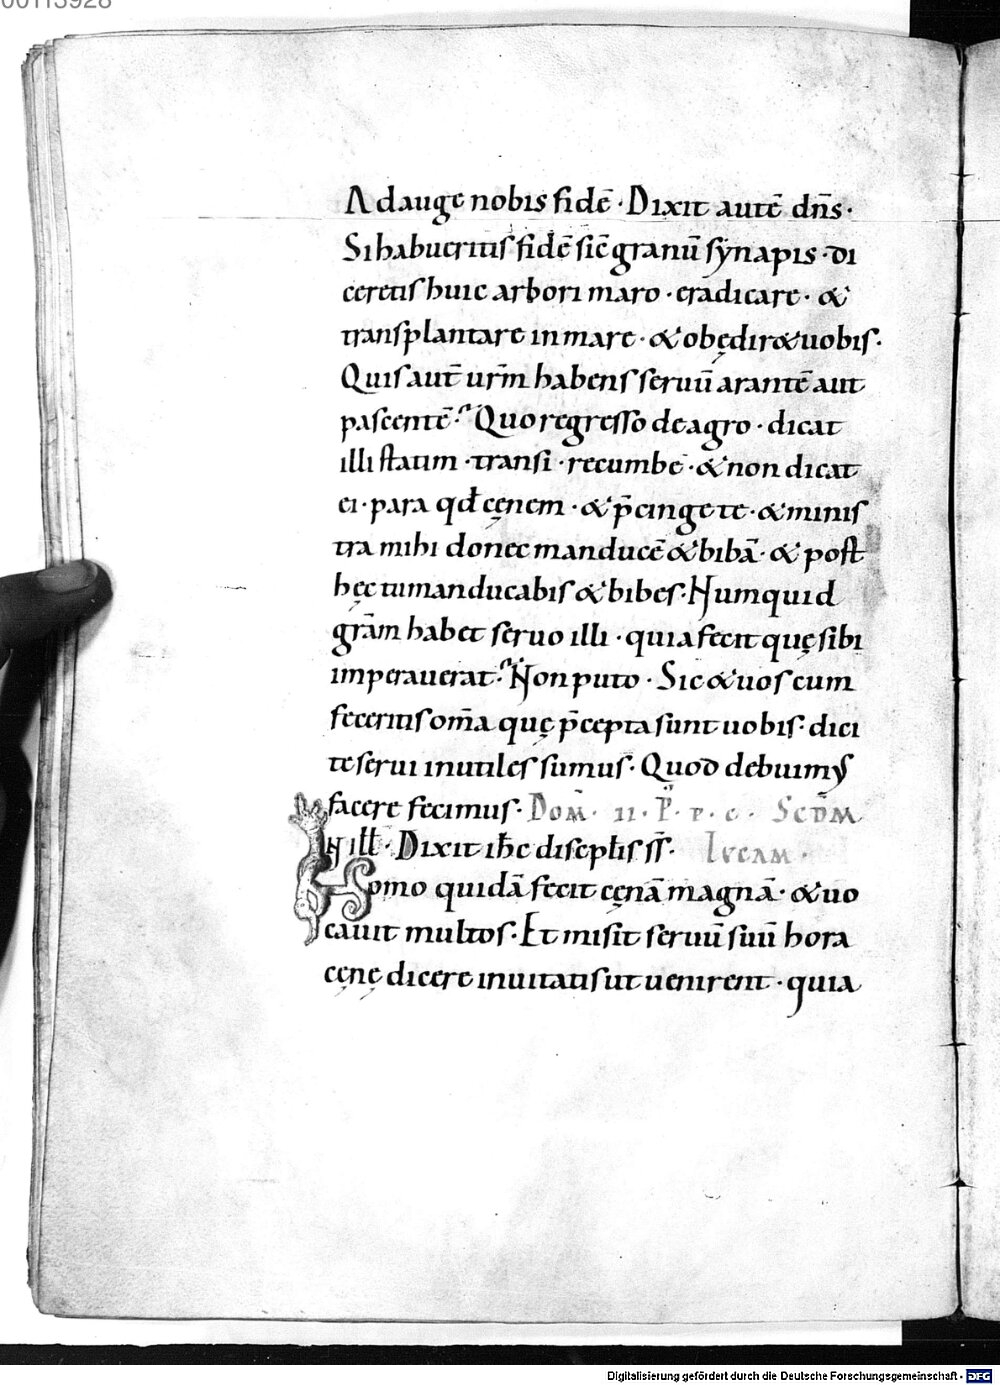 00113928
Adauge nobis fidē · Dixit autē dn̄s ·
Si habueritis fidē sic̄ granū synapis · di
ceretis huic arbori maro · eradicare · &
transplantare in mare · & obędir& uobis ·
Quis aut̄ ur̄m habens seruū arantē aut
pascentē · Quo regresso de agro · dicat
illi statim · transi · recumbe · & non dicat
ei · para qđ cęnem · & p̄cinge te · & minis
tra mihi donec manducē & bibā · & post
hęc tu manducabis & bibes · Numquid
grām habet seruo illi · quia fecit quę sibi
imperauerat · Non puto · Sic & uos cum
feceritis om̄a quę p̄cepta sunt uobis · dici
te serui inutiles sumus · Quod debuimus
facere fecimus · Dom̄ · II · P · P · C · Scdm
IN ill̄ · Dixit ihc̄ discipl̄is s̄s · Lucam ·
Homo quidā fecit cęnā magnā · & uo
cauit multos · Et misit seruū suū hora
cęnę dicere inuitatis ut uenirent · quia
Digitalisierung gefördert durch die Deutsche Forschungsgemeinschaft - DFG